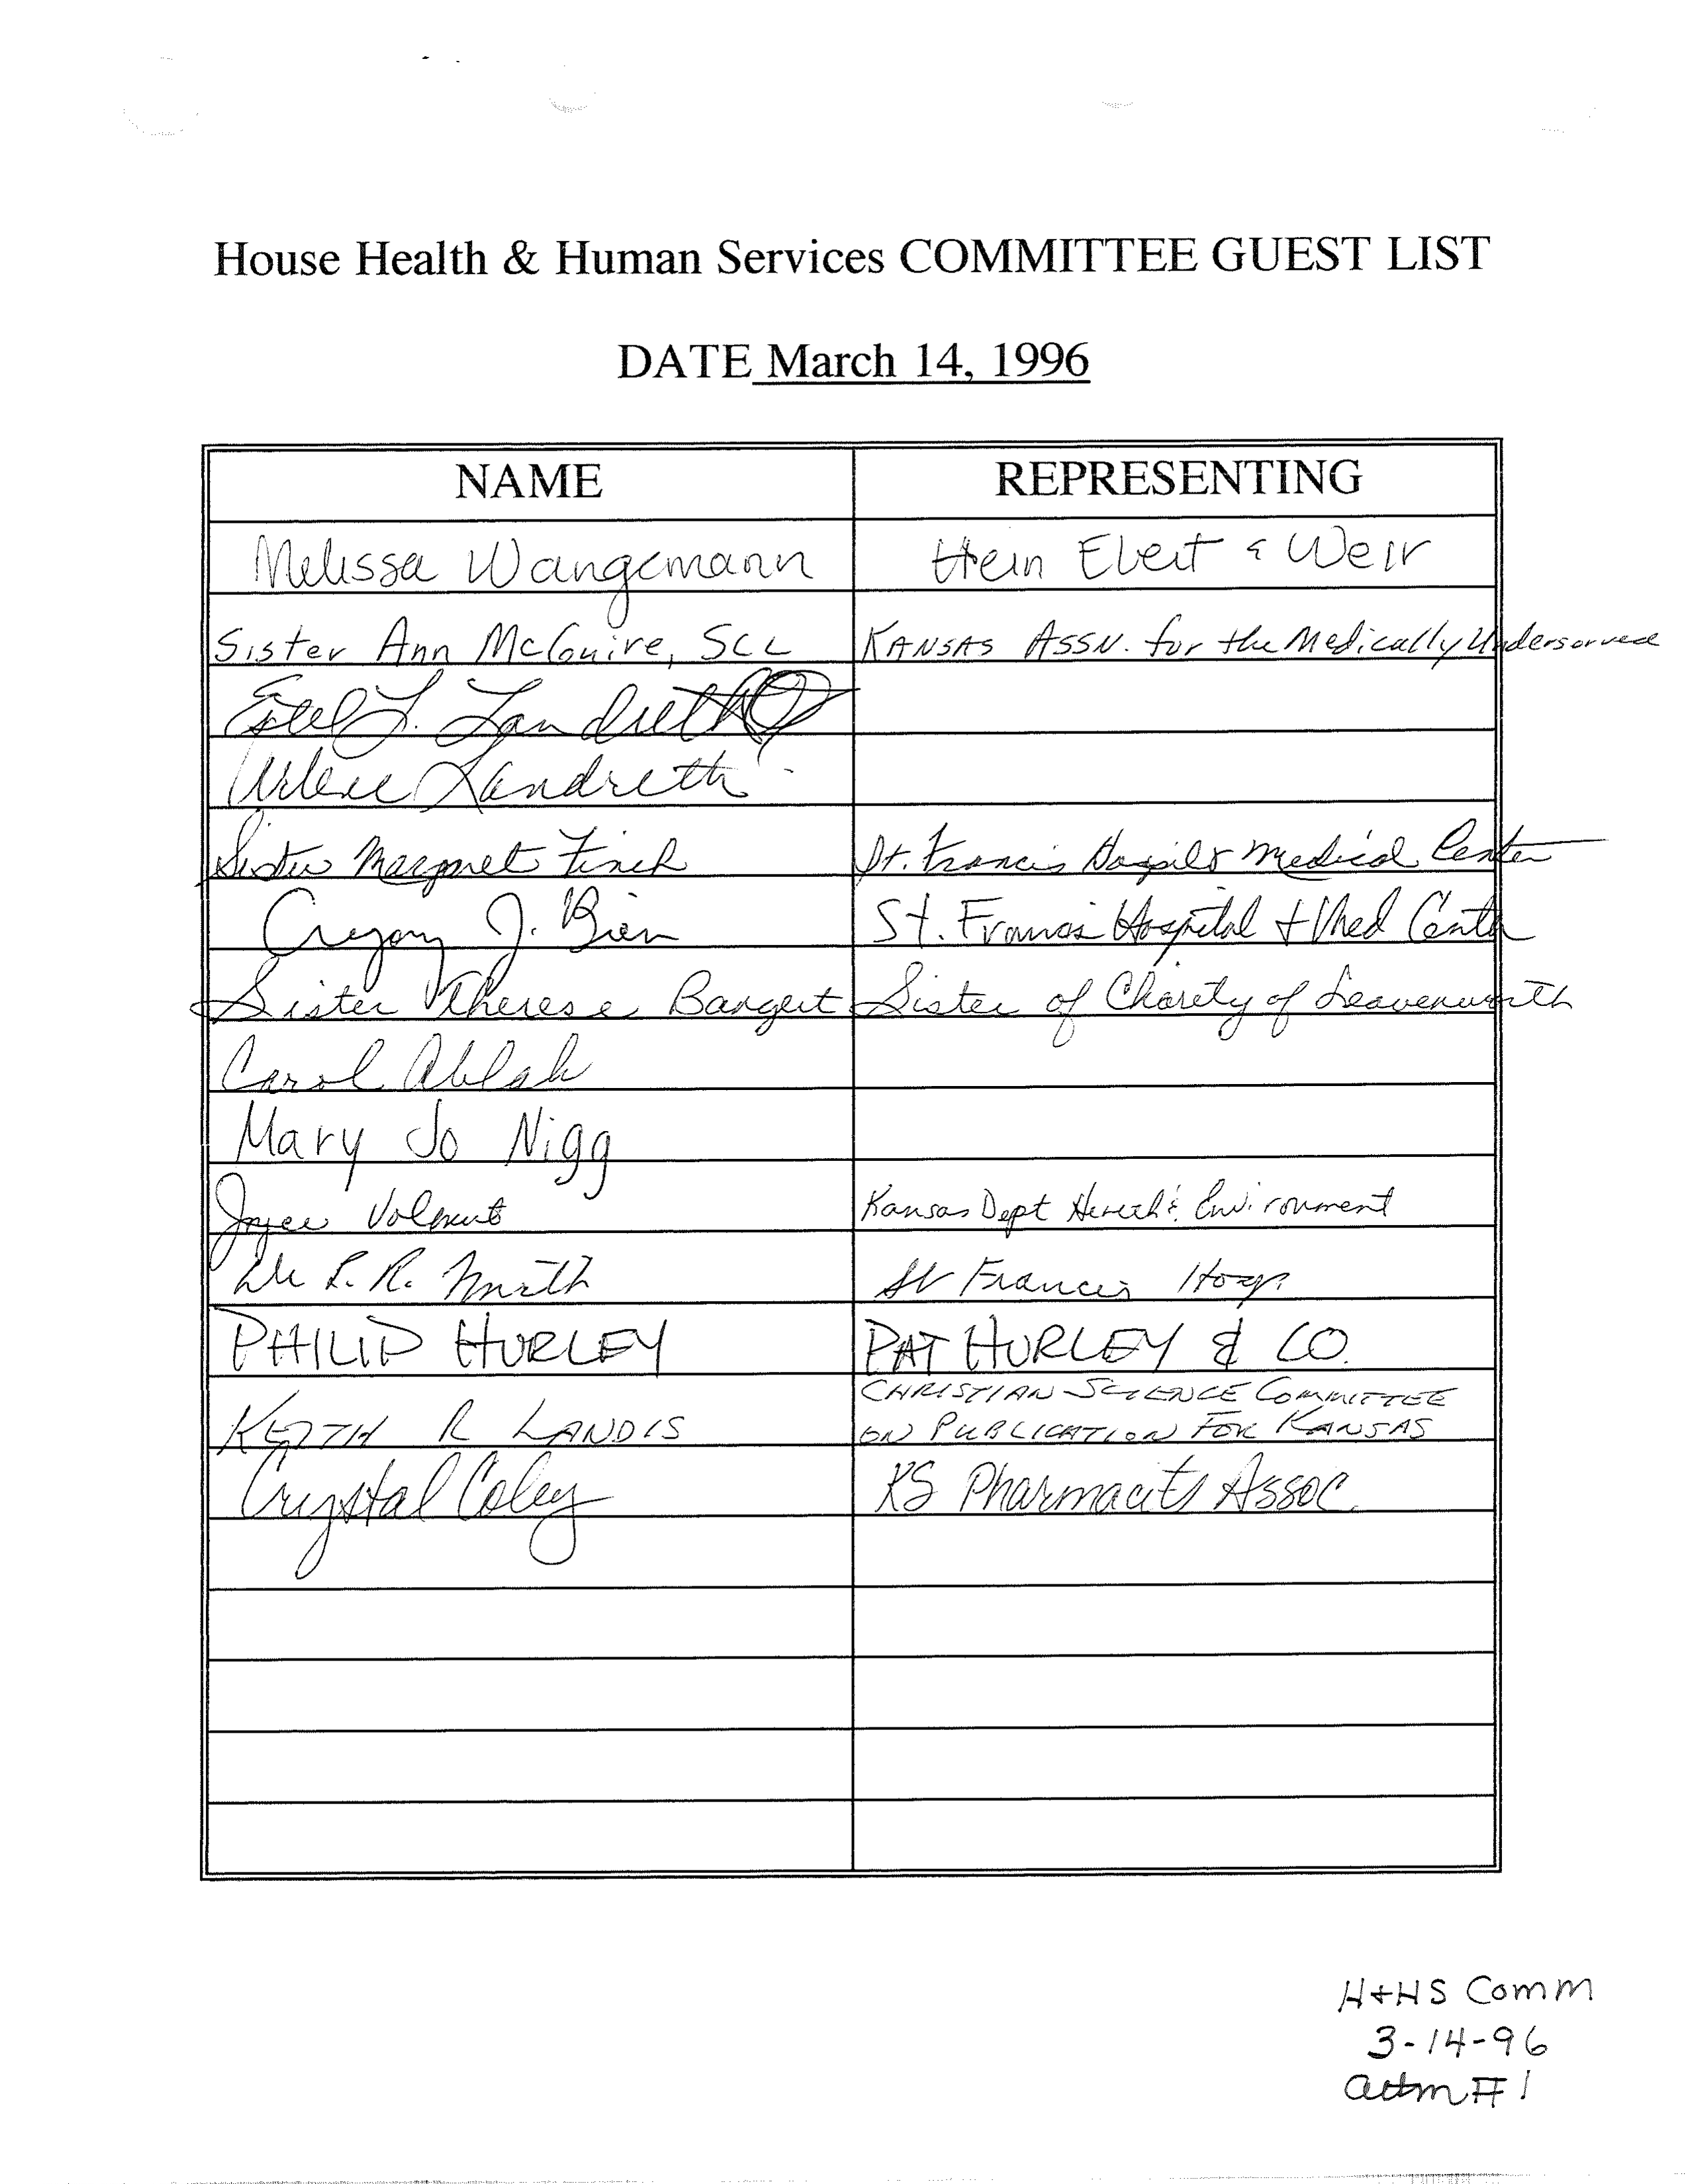 House Health & Human Services COMMITTEE GUEST LIST
DATE March 14, 1996
NAME REPRESENTING
Melissa Wangemann Hein Ebert & Weir
Sister Ann McGuire, SCL KANSAS ASSN. for the Medically Underserved
Estel L. Landreth
Arlene Landreth
Sister Margaret Finch St. Francis Hospital & Medical Center
Gregory J. Bien St. Francis Hospital + Med Center
Sister Therese Bangert Sister of Charity of Leavenworth
Carol Ablah
Mary Jo Nigg
Joyce Volmut Kansas Dept Health & Environment
L. R. St Francis Hosp.
PHILIP HURLEY PAT HURLEY & CO.
KEITH R LANDIS CHRISTIAN SCIENCE COMMITTEE
ON PUBLICATION FOR KANSAS
Crystal Coley KS Pharmacits Assoc.
H+HS Comm
3-14-96
attm # 1